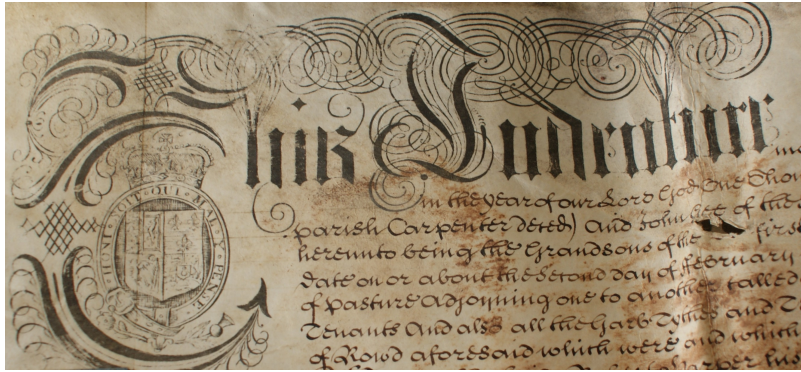 This Indenture
HONI · SOIT · QUI · MAL · Y · PENSE
in the year of our Lord God One Thou
parish Carpenter deced) And John of the
hereunto being the Grandsons of the first
date on or about the Second day of February
of pasture adjoyning one to another called
Tenants And also all the Garb Tythes and T
of Rowd aforesaid which were and which